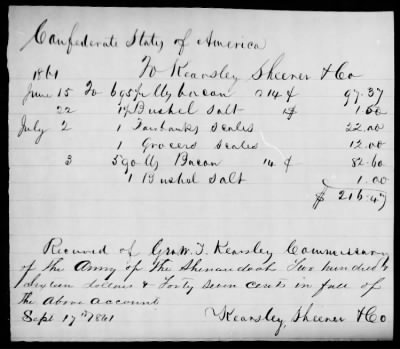 Confederate States of America
1861 To Kearsley Sheerer & Co
June 15 To 695½ lbs bacon @ 14 ¢ 97.37
22 1 Bushel Salt 1.00
July 2 1 Fairbanks Scales 22.00
1 Grocers Scales 12.00
3 590 lbs Bacon 14 ¢ 82.60
1 Bushel Salt 1.00
$ 216.47
Received of Geo. W. T. Kearsley Commissary
of the Army of the Shenandoah Two hundred &
sixteen dollars & Forty seven cents in full of
the above account
Sept 17th 1861 Kearsley, Sheerer & Co